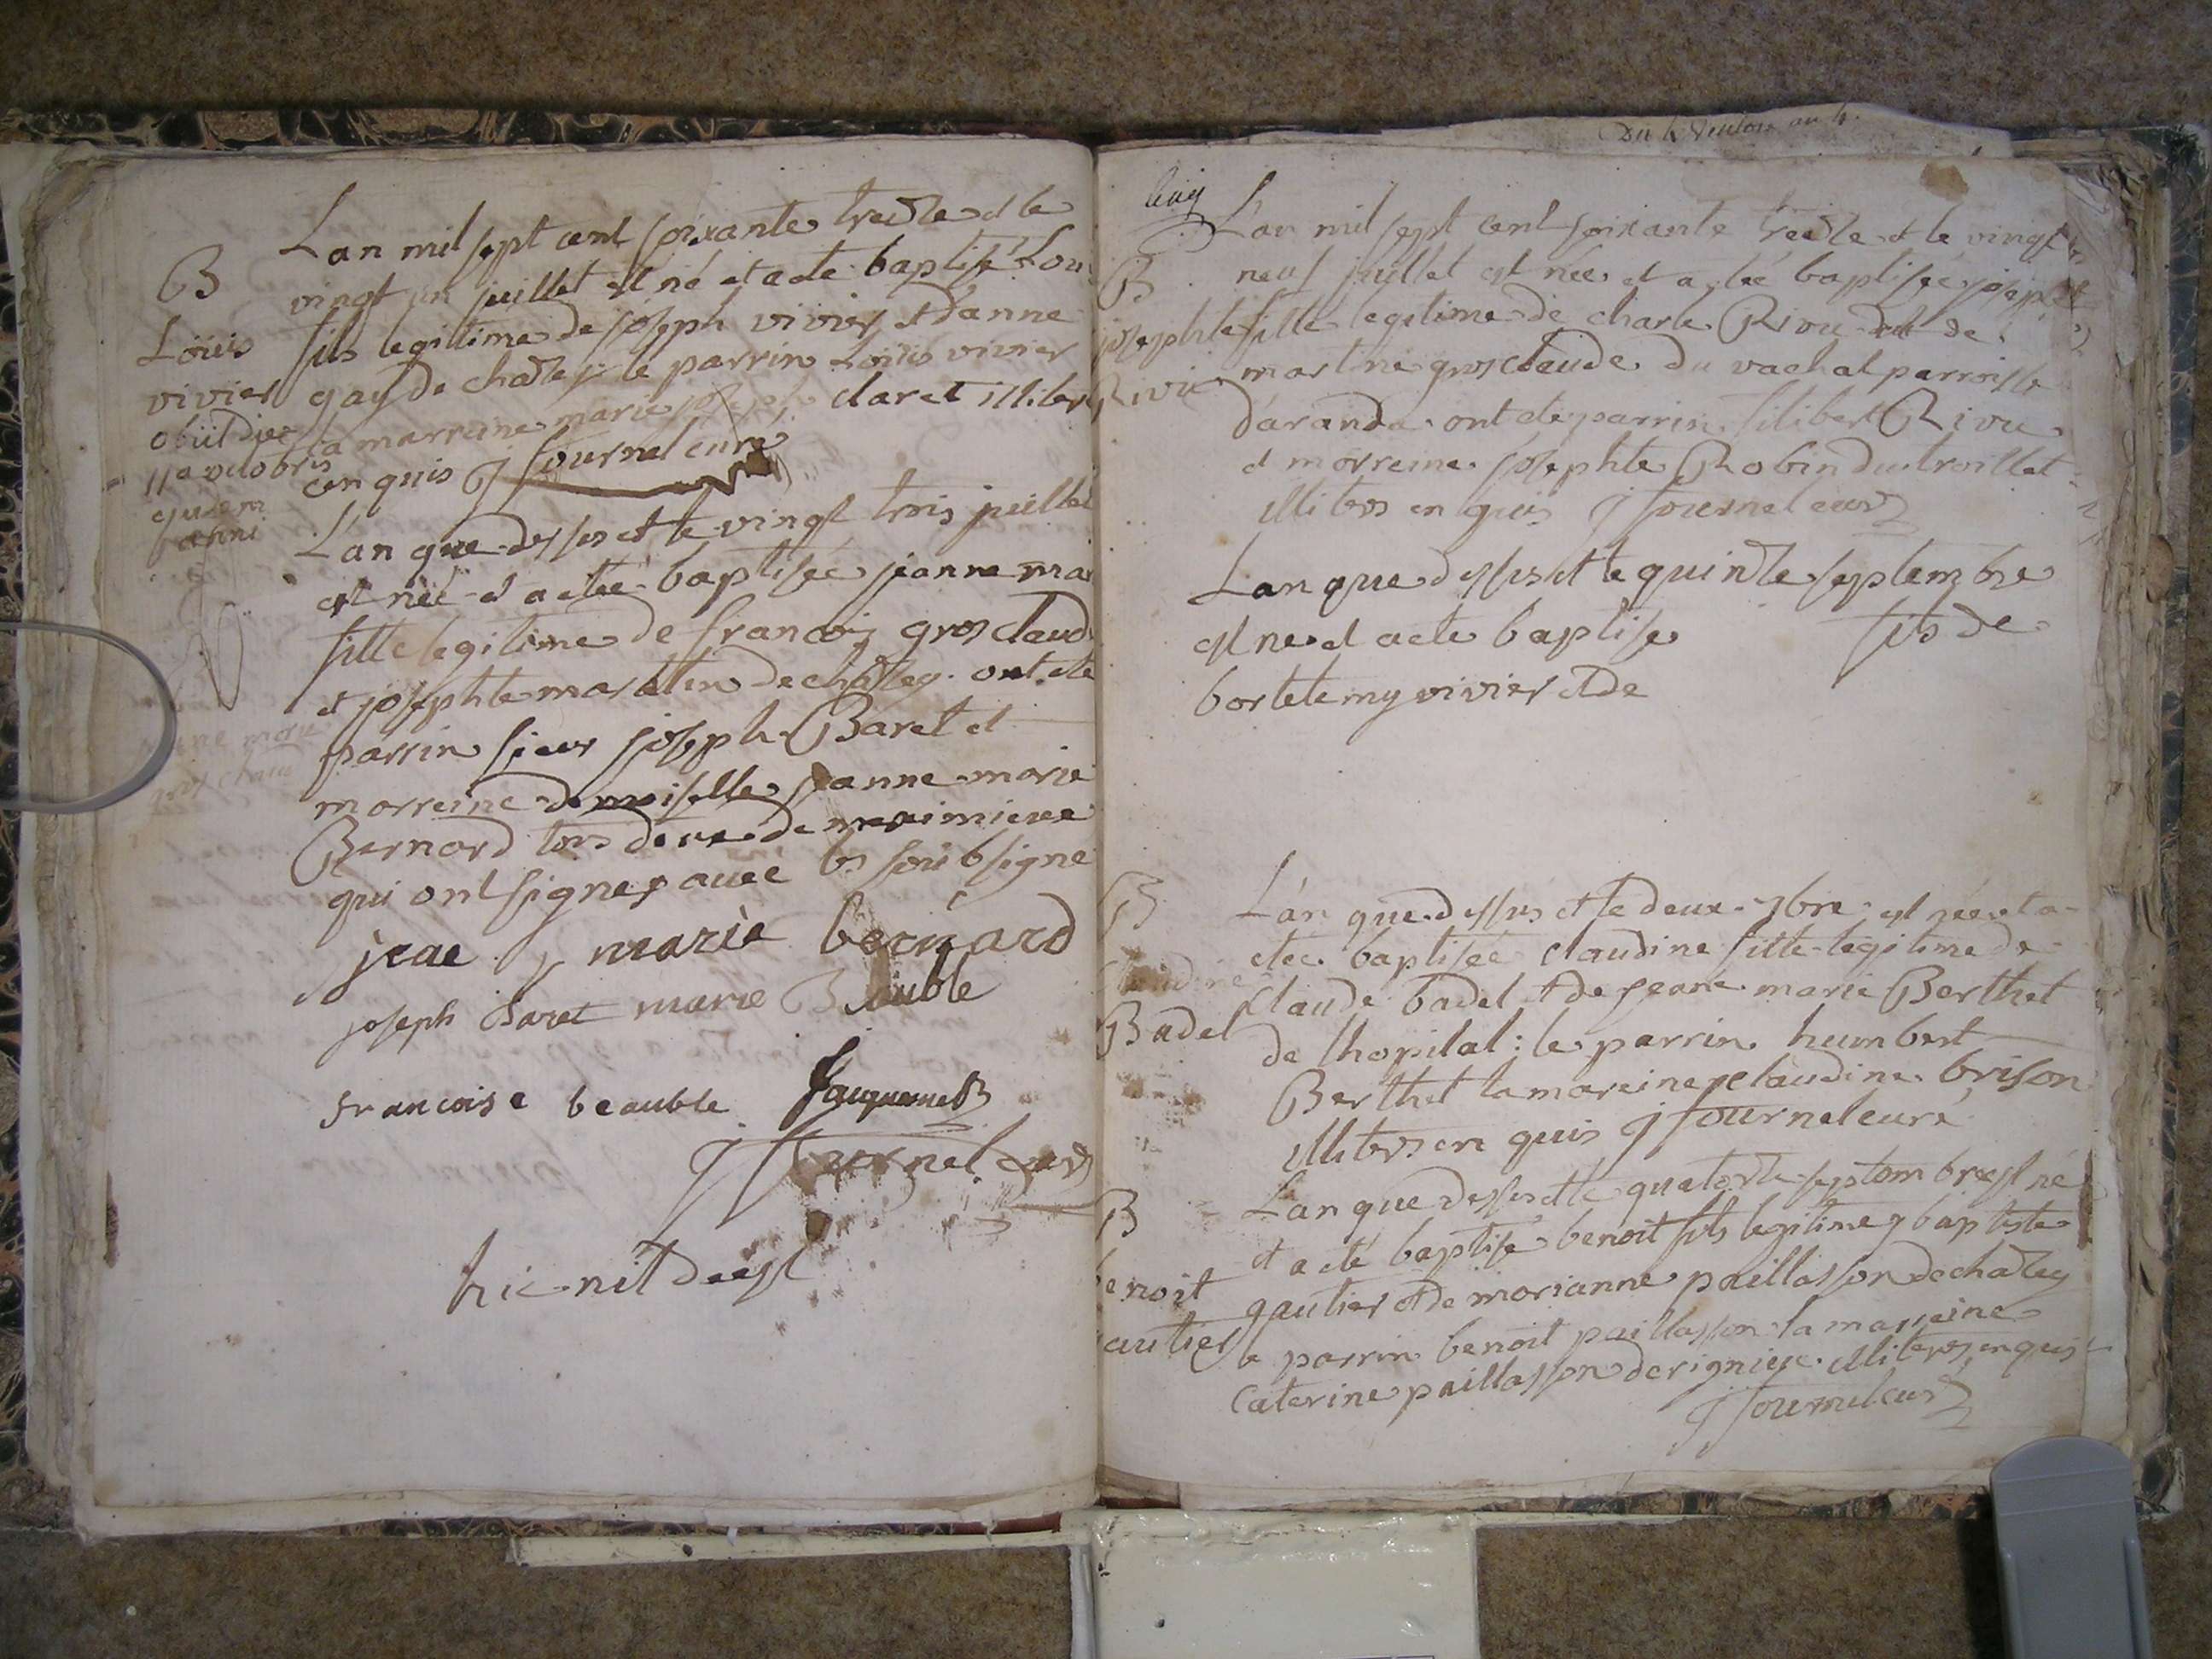 Lan mil sept cent soixante treize et le
B
vingt un juillet est né et a ete baptisé Lou
Loüis
fils legitime de joseph vivier et d'anne
vivier
gay de chazey le parrin Loüis vivier
obiit die
la marreine marie joseph claret illiter
11a octobris
en quis J fournel curé
L'an que dessus et le vingt trois juillet
est née et a etée baptisée jeanne mar
fille legitime de francois gros claud
et josephte martin de chazey ont ete
parrin sieur joseph Baret et
marreine demoiselle jeanne marie
Bernard tous deux de meximieux
qui ont signes avec les soubsigne
jeae marie bernard
joseph Baret marie Bauble
francoise beauble
J fournel curé
hic nil deest
Du 4 Ventose an 4.
L'an mil sept cent soixante treize et le vingt
B
neuf juillet est née et a etée baptisée joseph
josephte fille legitime de charle Rivu de
Rivu
martine grosclaude du vachat parroisse
d'aranda ont ete parrin filibert Rivu
et marreine josephte Robin du troillet
illiters en quis J fournel curé
Lan que dessus et le quinze septembre
est ne et a ete baptise fils de
bortelemy vivier et de
B
L'an que dessus et le deux 7bre est née et a
etée baptisée claudine fille legitime de
claudine
claude badel et de jeane marie Berthet
Badel
de lhopital : le parrin humbert
Berthet la mareine claudine brison
illiters en quis J fournel curé
Lan que dessus et le quatorze septembre est né
B
et a eté baptisé benoit fils legitime baptiste
benoit
gautier et de marianne paillasson de chazey
autier
le parrin benoit paillasson la marreine
Caterine paillasson de rignieu illiters en quis
J fournel curé